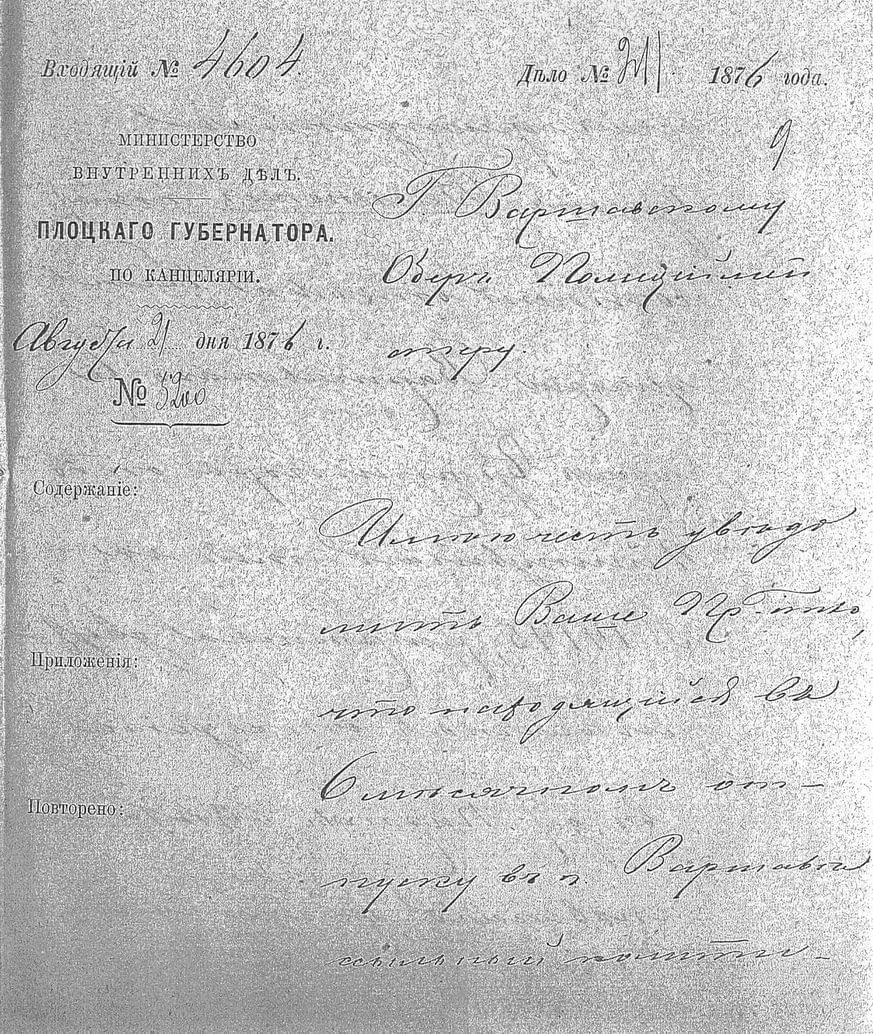 Входящій № 4604.
Дѣло № 211. 1876 года.
9
МИНИСТЕРСТВО
ВНУТРЕННИХЪ ДѢЛЪ.
ПЛОЦКАГО ГУБЕРНАТОРА.
ПО КАНЦЕЛЯРІИ.
Августа 21 дня 1876 г.
№ 5200
Г. Варшавскому
Оберъ Полиціймей
стеру.
Содержаніе:
Приложенія:
Повторено:
Имѣю честь увѣдо
мить Ваше Пр-тво,
что находящійся въ
6 мѣсячномъ от-
пуску въ г. Варшавѣ
ссыльный